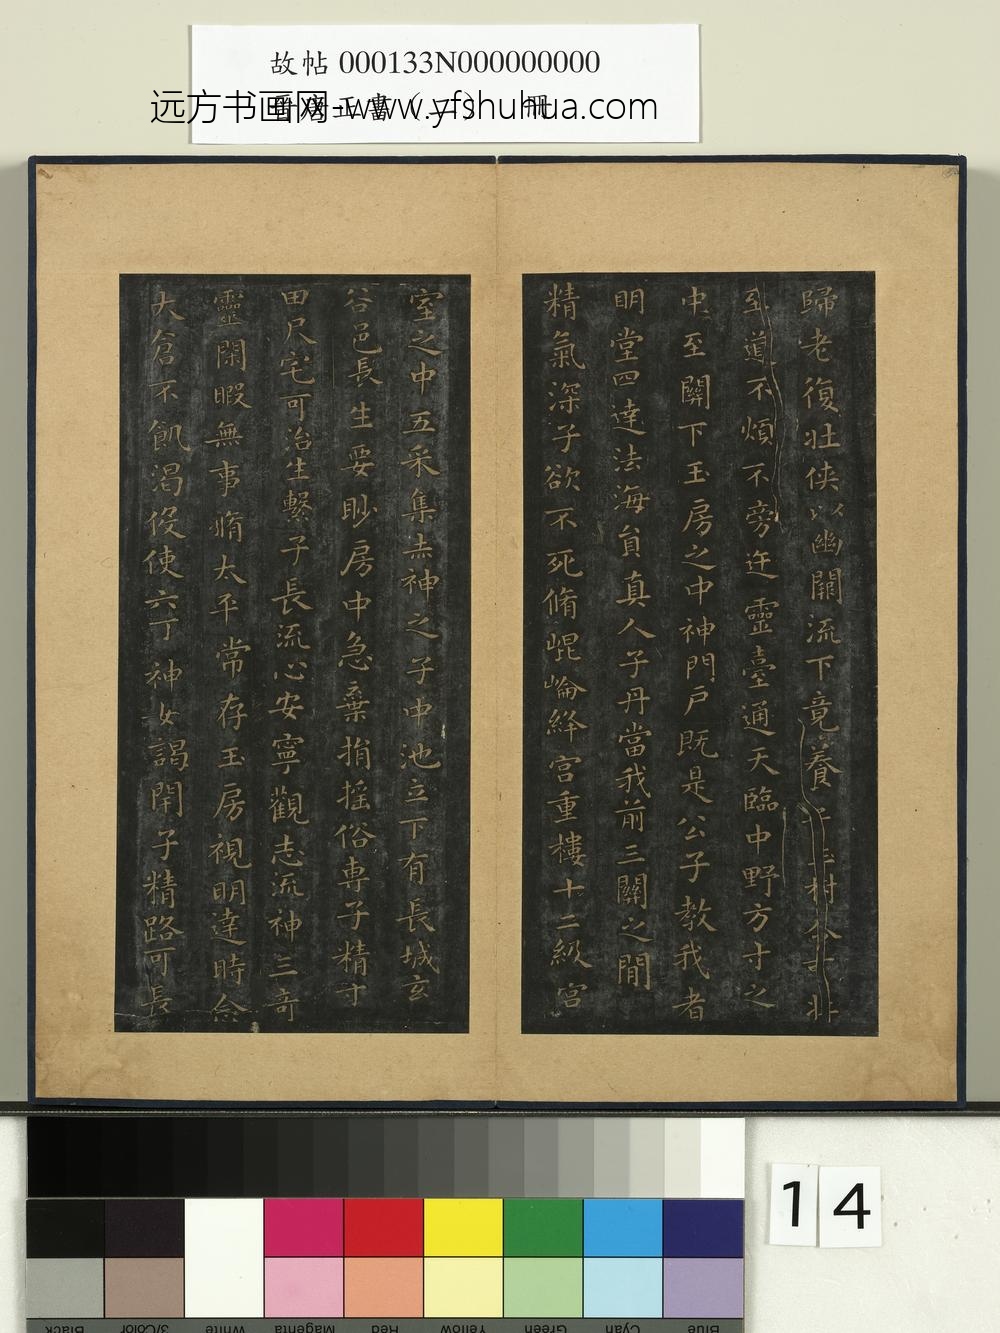 故帖 000133N000000000
晉唐正書(二) 冊
远方书画网-www.yfshuhua.com
歸老復壯俠以幽闕流下竟養子玉樹令可壯
至道不煩不旁迕靈臺通天臨中野方寸之
中至關下玉房之中神門戶既是公子教我者
明堂四達法海員真人子丹當我前三關之間
精氣深子欲不死脩崐崘絳宮重樓十二級宮
室之中五采集赤神之子中池立下有長城玄
谷邑長生要眇房中急棄捐搖俗專子精寸
田尺宅可治生繫子長流心安寧觀志流神三奇
靈閑暇無事脩太平常存玉房視明達時念
大倉不飢渴役使六丁神女謁閉子精路可長
14
Black
3/Color
White
Magenta
Red
Yellow
Green
Cyan
Blue